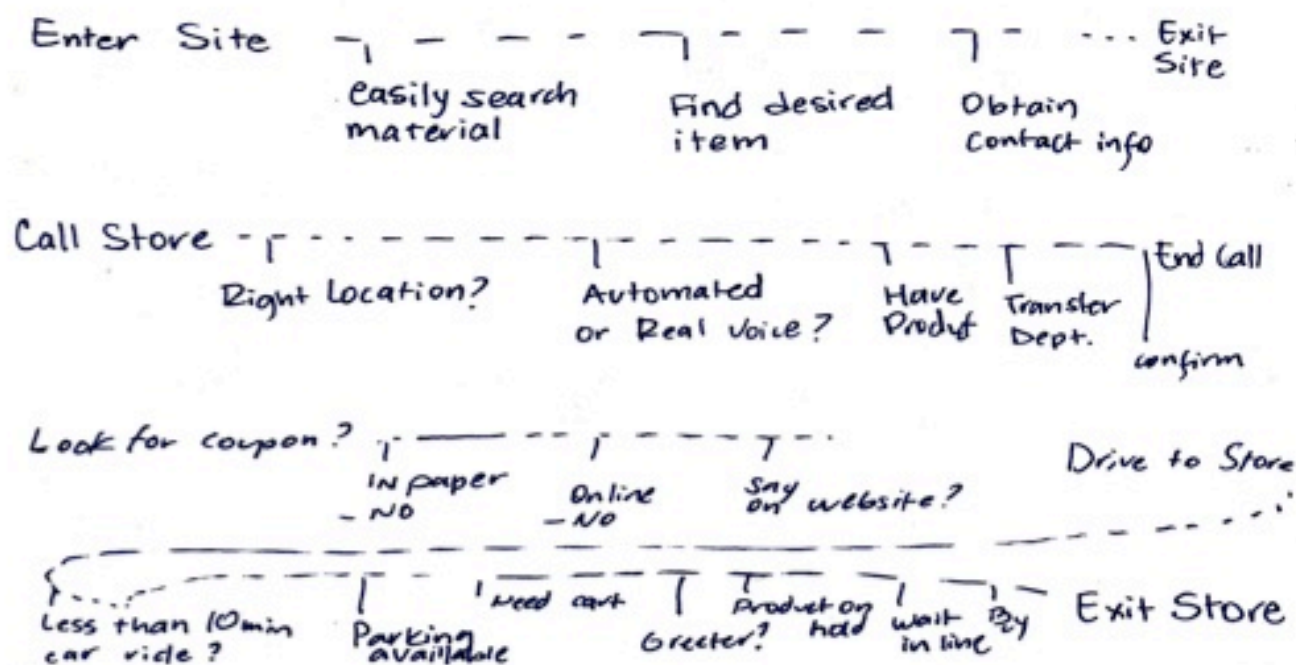 Enter Site
Exit
Site
easily search
material
Find desired
item
Obtain
Contact info
Call Store
End Call
Right Location?
Automated
or Real Voice?
Have
Transfer
Dept.
confirm
Look for coupon?
IN paper
- NO
Online
- NO
Say
on website?
Drive to Store
Less than 10min
car ride?
Parking
available
Need cart
Greeter?
Product on
hold
wait
in line
Exit Store